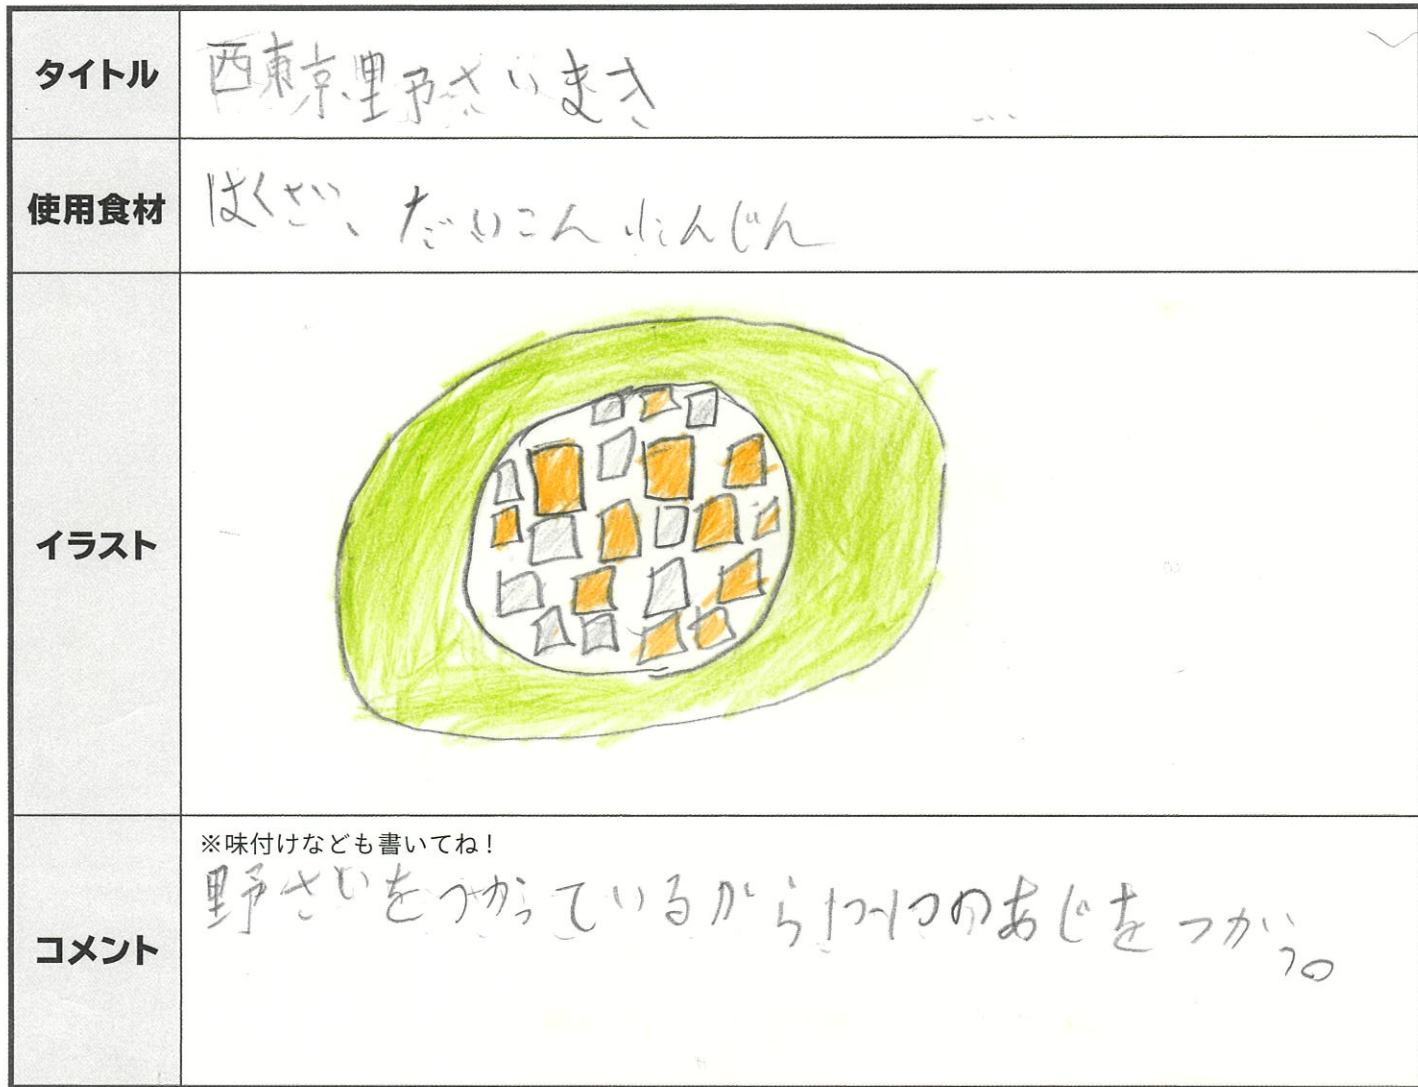 タイトル
西東京野さいまき
使用食材
はくさい、だいこん にんじん
イラスト
コメント
※味付けなども書いてね！
野さいをつかっているから1つ1つのあじをつかう。